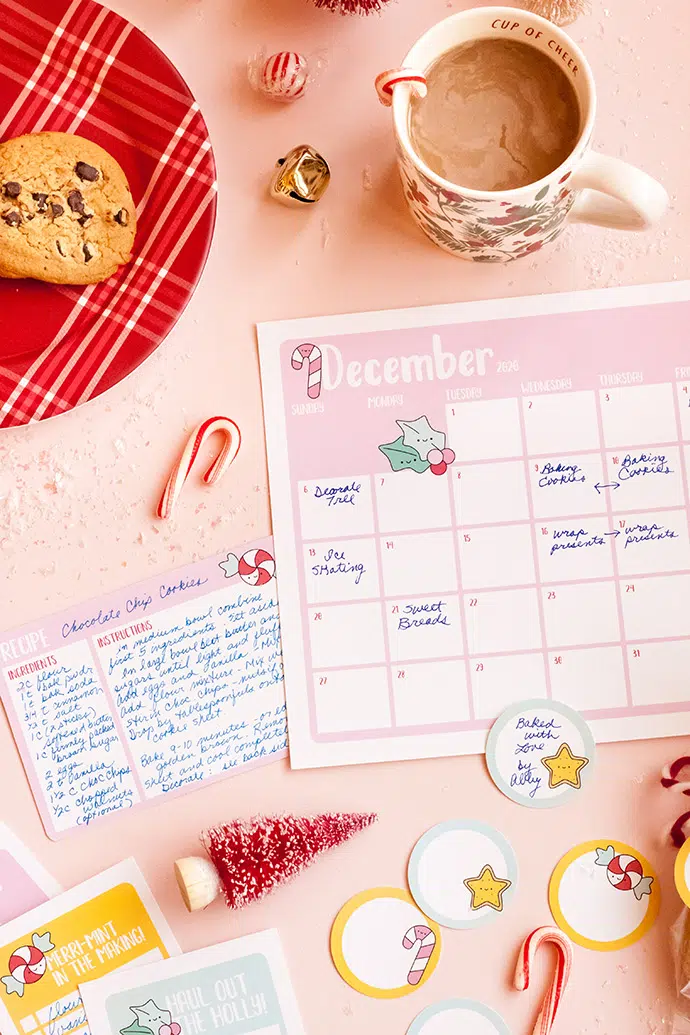 CUP OF CHEER
December 2026
SUNDAY MONDAY TUESDAY WEDNESDAY THURSDAY
1 2 3 4
6 7 8 9 10
Decorate
Tree
Baking
Cookies
Baking
Cookies
13 14 15 16 17
Ice
Skating
wrap
presents
wrap
presents
20 21 22 23 24
Sweet
Breads
27 28 29 30 31
RECIPE Chocolate Chip Cookies
INGREDIENTS
2c flour
1t bak soda
3/4 t cinnamon
1c (2 sticks)
softened butter
1c firmly packed
brown sugar
2 eggs
2 t vanilla
1 1/2 c Choc Chips
1/2c chopped
walnuts
(optional)
INSTRUCTIONS
in medium bowl combine
first 5 ingredients. Set aside
in large bowl beat butter and
sugars until light and
add eggs and vanilla
add flour mixture. Mix
Stir in choc chips
Drop by tablespoonfuls onto
cookie sheet.
Bake 9-10 minutes -or
golden brown.
sheet and cool
Decorate: see back side
Baked
with
Love
by
Abby
MERRI-MINT
IN THE MAKING!
flour
HAUL OUT
THE HOLLY!